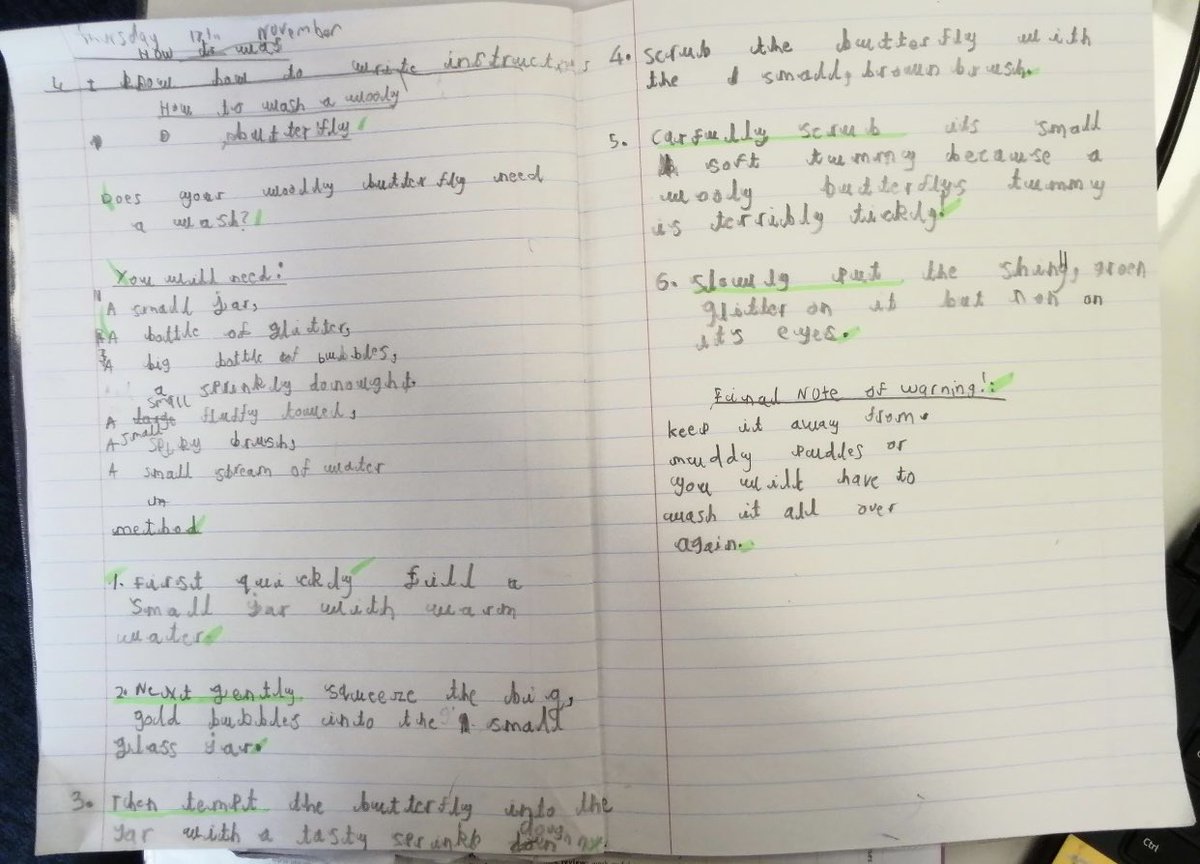 Thursday 12th November
How to was
L I know how to write instructions
How to wash a woolly
butterfly
Does your woolly butterfly need
a wash?
You will need:
A small jar,
A bottle of glitter,
A big bottle of bubbles,
a sprinkly donought
small
A large fluffy towel,
A small spiky brush,
A small stream of water
method
1. First quickly fill a
small jar with warm
water.
2. Next gently squeeze the big,
gold bubbles into the small
glass jar.
3. Then tempt the butterfly into the
jar with a tasty sprinkle
4. Scrub the butterfly with
the small, brown brush.
5. Carfully scrub its small
soft tummy because a
wooly butterflys tummy
is terribly tickly!
6. Slowly put the shiny, green
glitter on it but not on
it's eyes.
Final Note of warning!:
keep it away from
muddy puddles or
you will have to
wash it all over
again.
Ctrl